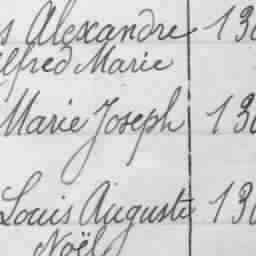 s Alexandre 130
lfred Marie
Marie Joseph 130
Louis Auguste 130
Noël